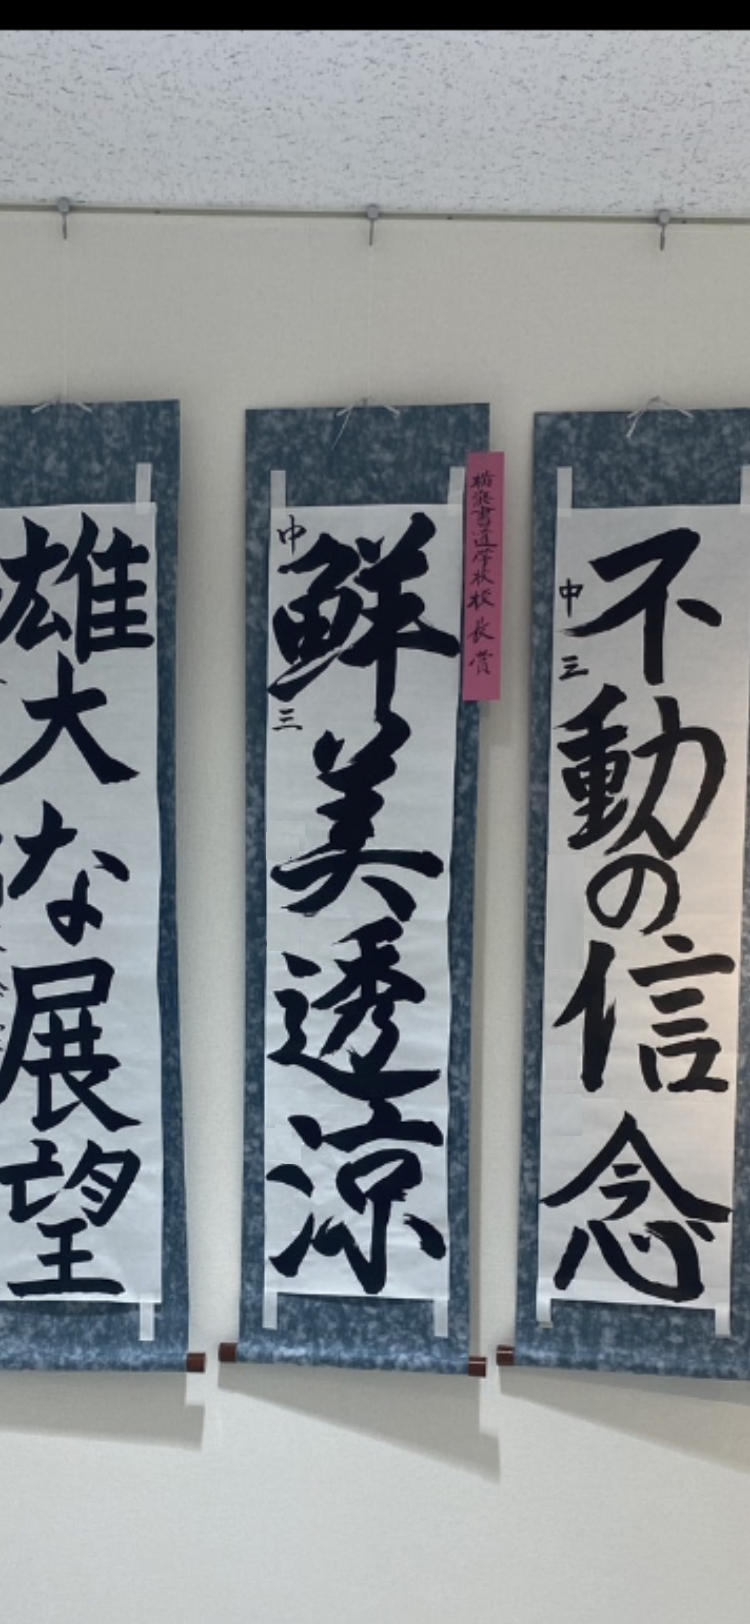 不動の信念
中三
横浜書道学校校長賞
鮮美透涼
中三
雄大な展望